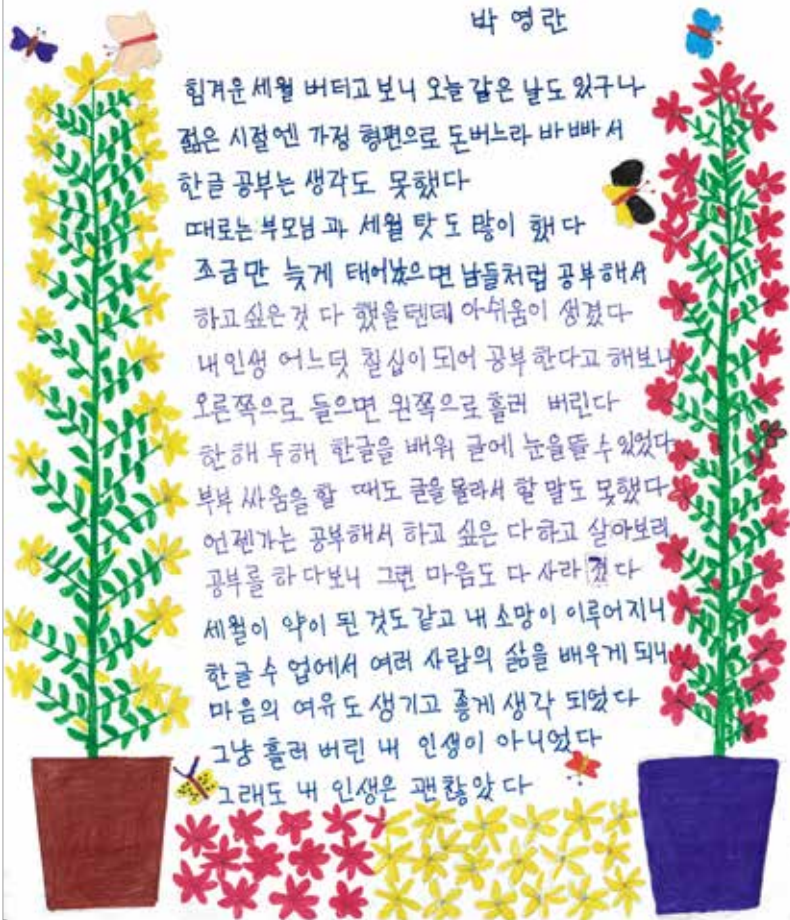 박영란
힘겨운 세월 버티고 보니 오늘 같은 날도 있구나
젊은 시절엔 가정 형편으로 돈버느라 바빠서
한글 공부는 생각도 못했다
때로는 부모님과 세월 탓도 많이 했다
조금만 늦게 태어났으면 남들처럼 공부해서
하고 싶은것 다 했을텐데 아쉬움이 생겼다
내 인생 어느덧 칠십이 되어 공부한다고 해보니
오른쪽으로 들으면 왼쪽으로 흘러 버린다
한해 두해 한글을 배워 글에 눈을 뜰 수 있었다
부부 싸움을 할 때도 글을 몰라서 할 말도 못했다
언젠가는 공부해서 하고 싶은 다하고 살아보리
공부를 하다보니 그런 마음도 다 사라졌다
세월이 약이 된 것도 같고 내 소망이 이루어지니
한글 수업에서 여러 사람의 삶을 배우게 되니
마음의 여유도 생기고 좋게 생각 되었다
그냥 흘러 버린 내 인생이 아니었다
그래도 내 인생은 괜찮았다